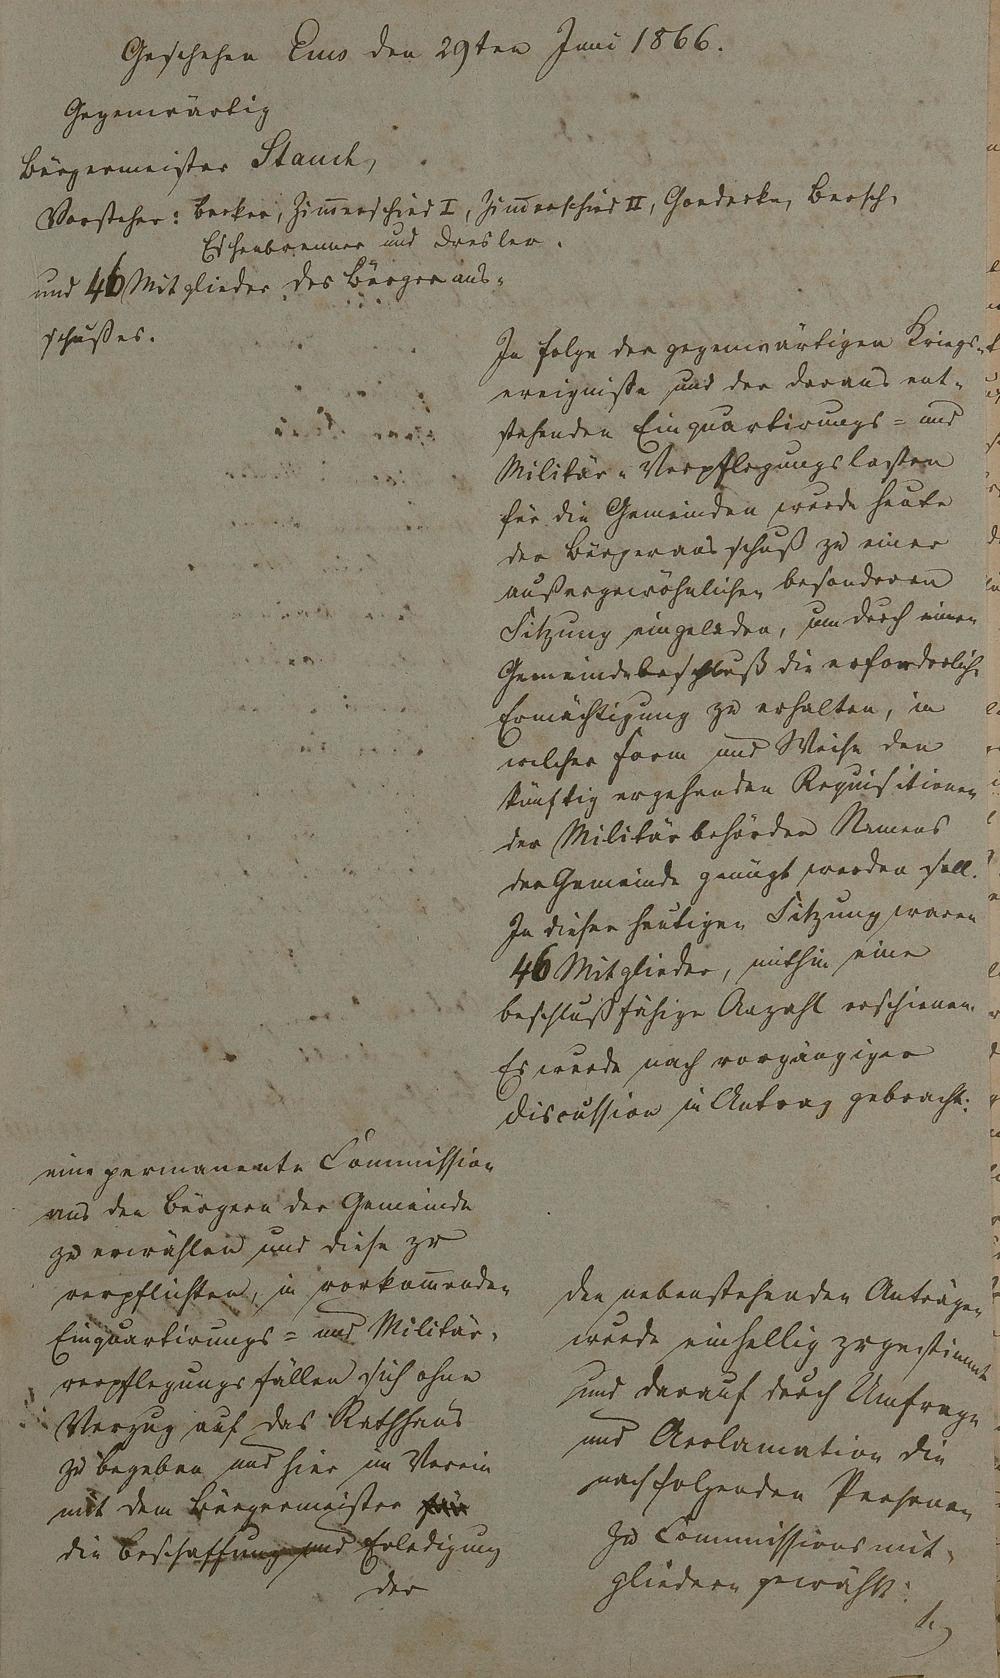 Geschehen Ems den 29ten Juni 1866.
Gegenwärtig
Bürgermeister Stauch,
Vorsteher: Becker, Zim̅erschied I, Zim̅erschied II, Goedecke, Bersch,
Eschenbrenner und Dresler.
und 46 Mitglieder des Bürgeraus-
schußes.
In folge der gegenwärtigen Kriegs-
ereigniße und der daraus ent-
stehenden Einquartirungs- und
Militär-Verpflegungslasten
für die Gemeinden wurde heute
der Bürgerausschuß zu einer
außergewöhnlichen besonderen
Sitzung eingeladen, um durch einen
Gemeindebeschluß die erforderliche
Ermächtigung zu erhalten, in
welcher Form und Weise den
künftig ergehenden Requisitionen
der Militärbehörden Namens
der Gemeinde genügt werden soll.
In dieser heutigen Sitzung waren
46 Mitglieder, mithin eine
beschlußfähige Anzahl erschienen.
Es wurde nach vorgängiger
Discussion in Antrag gebracht:
eine permanente Commission
aus den Bürgern der Gemeinde
zu erwählen und diese zu
verpflichten, in vorkom̅enden
Einquartirungs- und Militär-
verpflegungsfällen sich ohne
Verzug auf das Rathhaus
zu begeben und hier im Verein
mit dem Bürgermeister für
die Beschaffung und Erledigung
der
Den nebenstehenden Anträgen
wurde einhellig zugestimmt
und darauf durch Umfrage
und Acclamation die
nachfolgenden Personen
zu Commissionsmit-
gliedern gewählt: